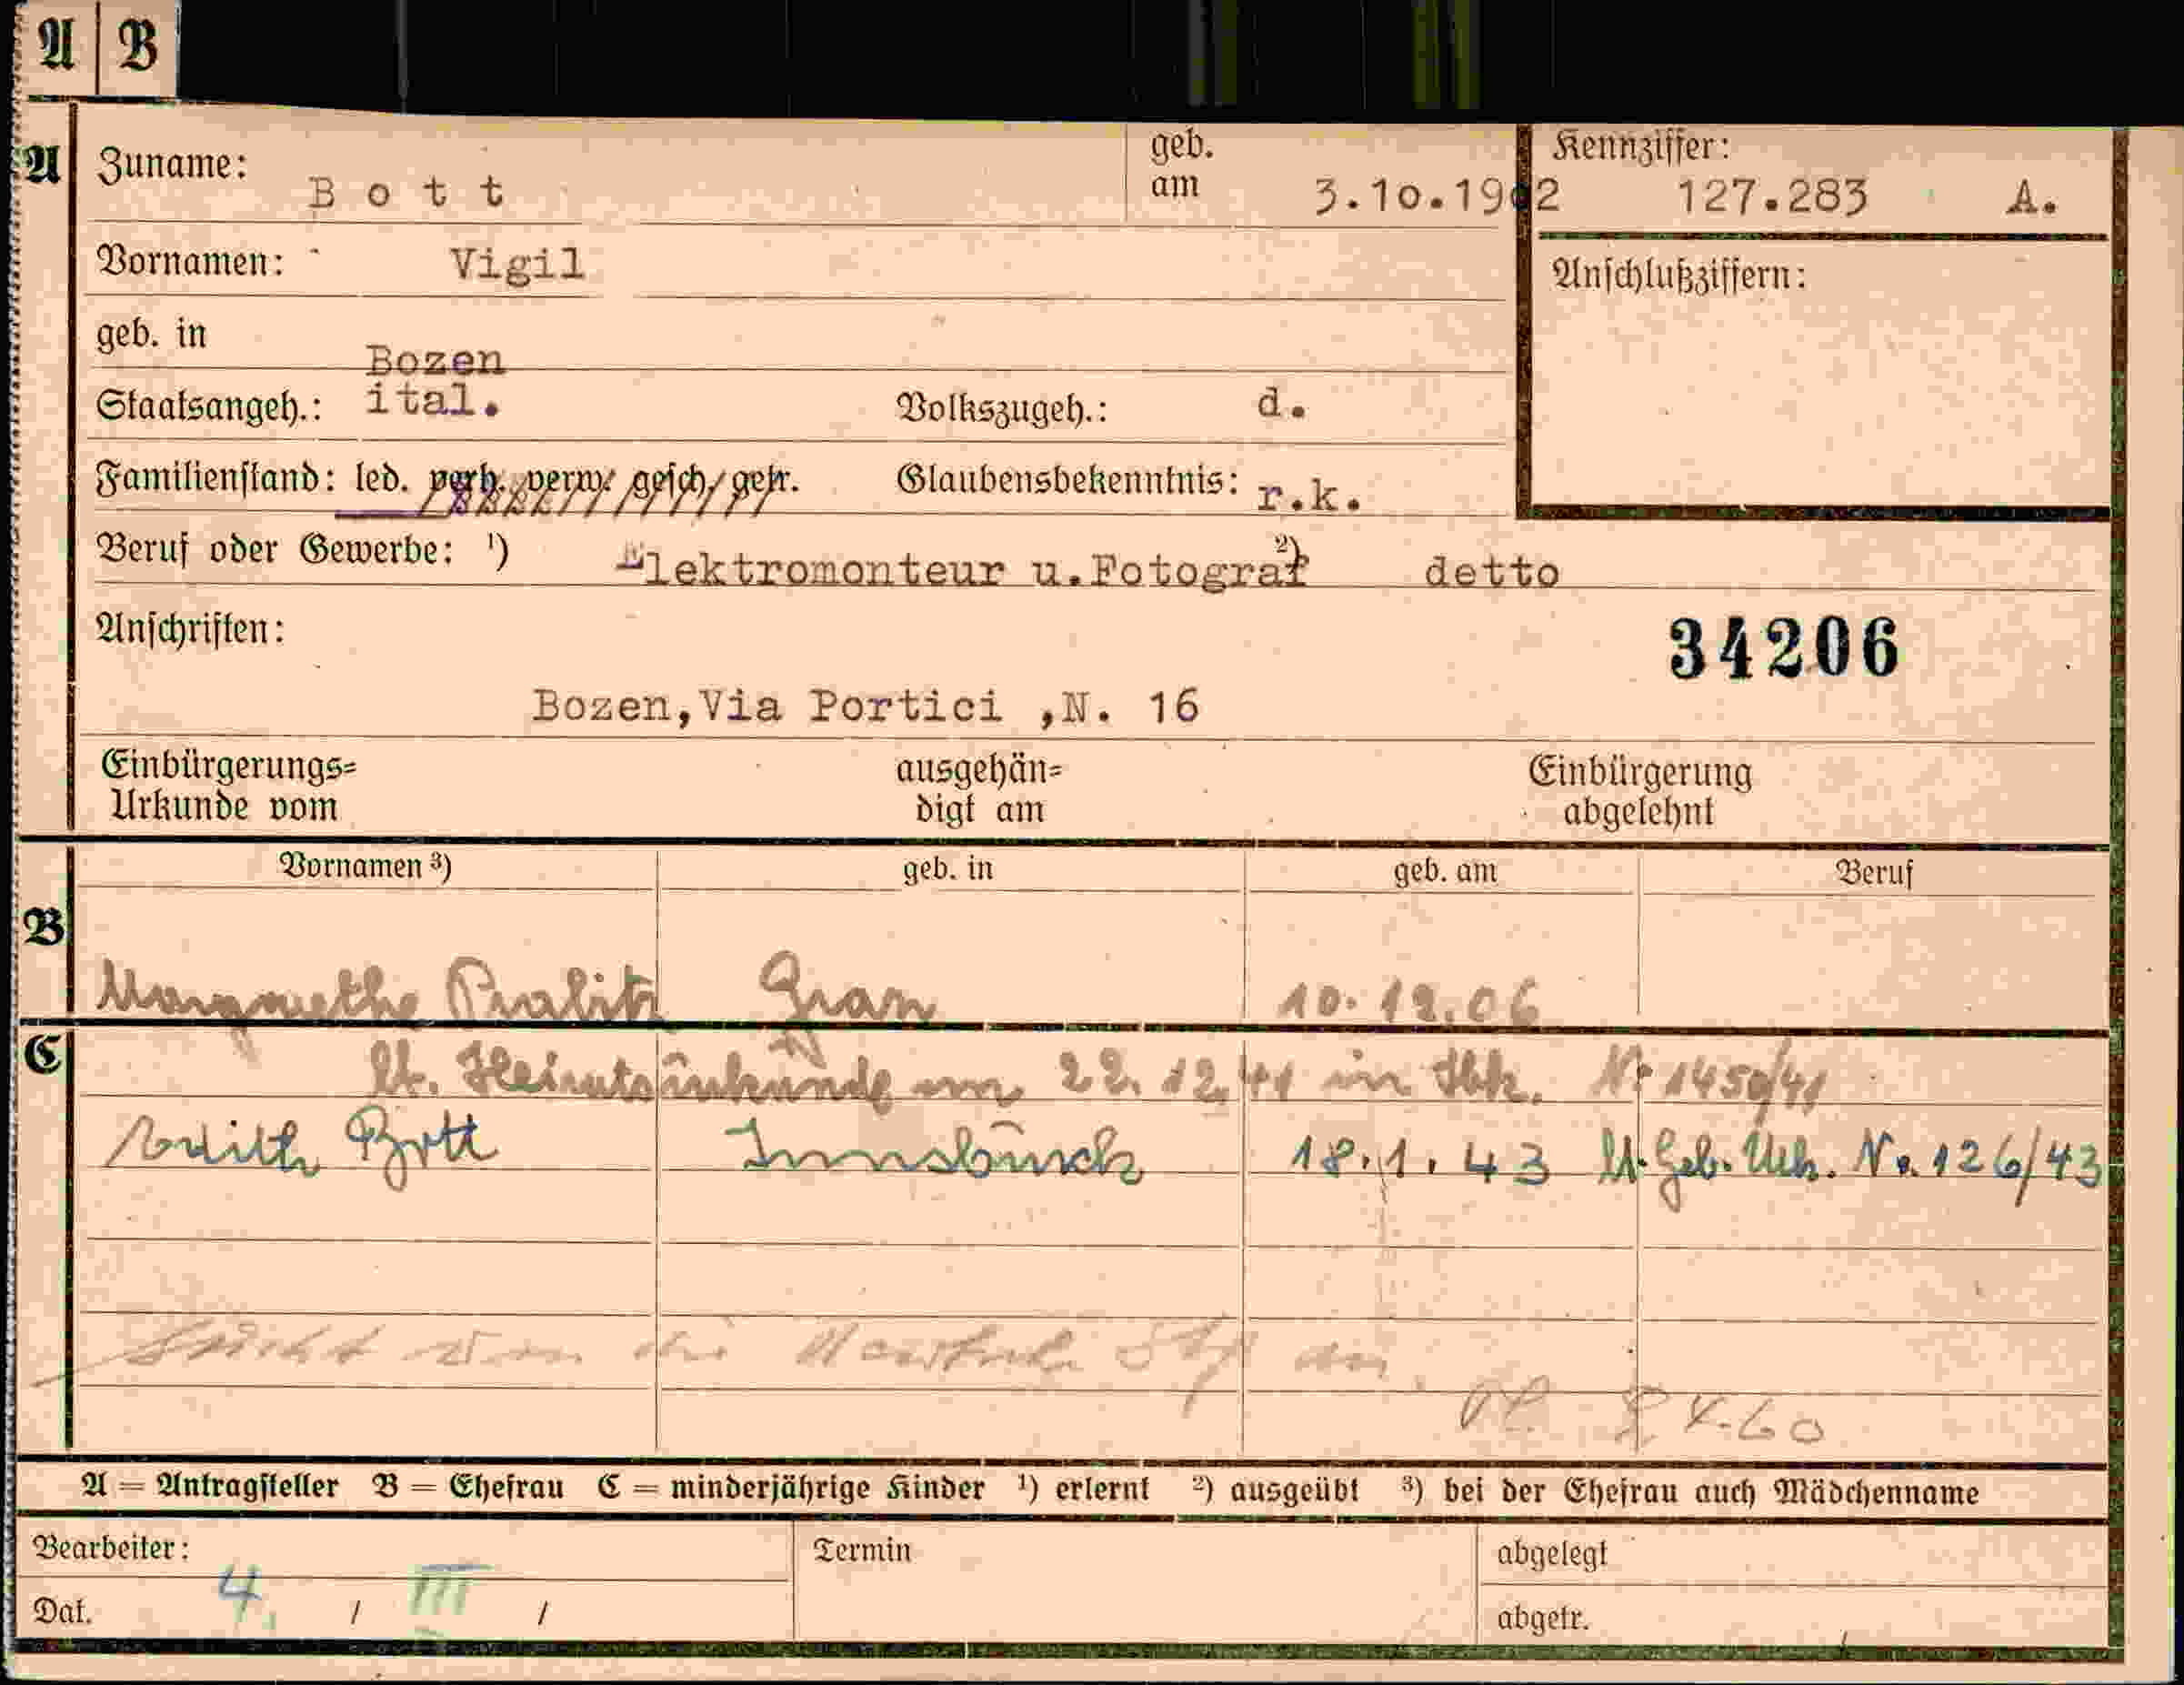 A B
A Zuname: Bott geb. am 3.10.1902 Kennziffer: 127.283 A.
Vornamen: Vigil Anschlußziffern:
geb. in Bozen
Staatsangeh.: ital. Volkszugeh.: d.
Familienstand: led. verh. verw. gesch. getr. Glaubensbekenntnis: r.k.
Beruf oder Gewerbe: ¹) Elektromonteur u.Fotograf ²) detto
Anschriften: 34206
Bozen,Via Portici ,N. 16
Einbürgerungs= ausgehän= Einbürgerung
Urkunde vom digt am abgelehnt
Vornamen ³) geb. in geb. am Beruf
B
Margarethe 10.12.06
C
lt. Heiratsurkunde vom 22.12.41 in Ibk. Nr 1450/41
Edith Bott Innsbruck 18.1.43 lt. Geb. Urk. No. 126/43
4.60
A = Antragsteller B = Ehefrau C = minderjährige Kinder ¹) erlernt ²) ausgeübt ³) bei der Ehefrau auch Mädchenname
Bearbeiter: Termin abgelegt
Dat. 4. / III / abgetr.